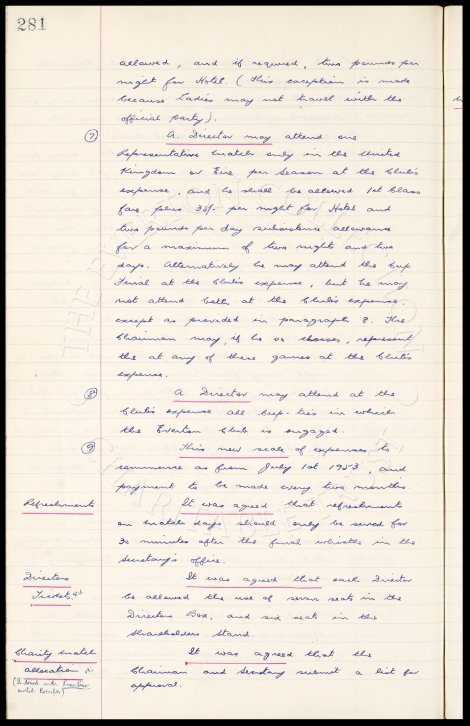 281
allowed, and if required, two pounds per
night for Hotel. (This exception is made
because Ladies may not travel with the
official party).
(7) A Director may attend one
Representative match only in the United
Kingdom or Eire per season at the Club's
expense, and he shall be allowed 1st Class
fare plus 35/- per night for Hotel and
two pounds per day subsistence allowance
for a maximum of two nights and two
days. Alternatively he may attend the Cup
Final at the Club's expense, but he may
not attend both at the Club's expense.
except as provided in paragraph 8. The
Chairman may, if he so chooses, represent
the at any of these games at the Club's
expense.
(8) A Director may attend at the
Club's expense all Cup-ties in which
the Everton Club is engaged.
(9) This new scale of expenses to
commence as from July 1st 1953, and
payment to be made every two months.
Refreshments It was agreed that refreshments
on match days should only be served for
30 minutes after the final whistle in the
Secretary's office.
Directors It was agreed that each Director
Tickets
be allowed the use of seven seats in the
Directors Box, and six seats in the
Shareholders Stand.
Charity match It was agreed that the
allocation
Chairman and Secretary submit a list for
approval.